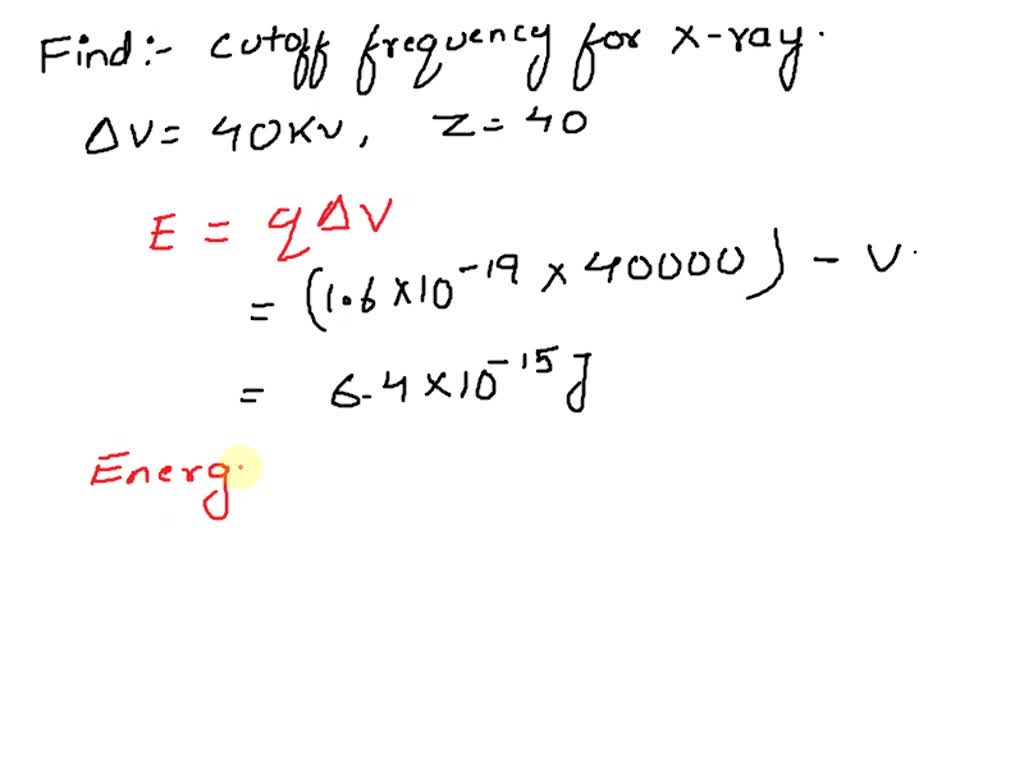 Find:- cutoff frequency for x-ray.
ΔV= 40KV, Z= 40
E = qΔV
= (1.6×10⁻¹⁹ × 40000) - V.
= 6.4×10⁻¹⁵J
Energ